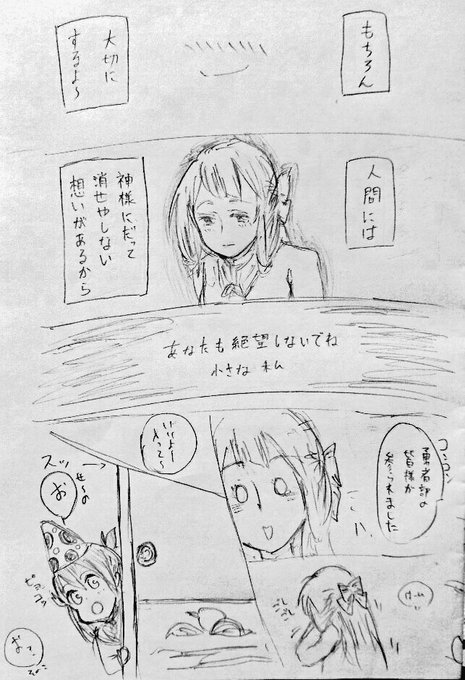 もちろん
大切に
するよ～
人間には
神様にだって
消せやしない
想いがあるから
あなたも絶望しないでね
小さな私
コンコン
勇者部の
皆様が
参られました
いいよー
入って～
スッ
せーの
お
ピョコ